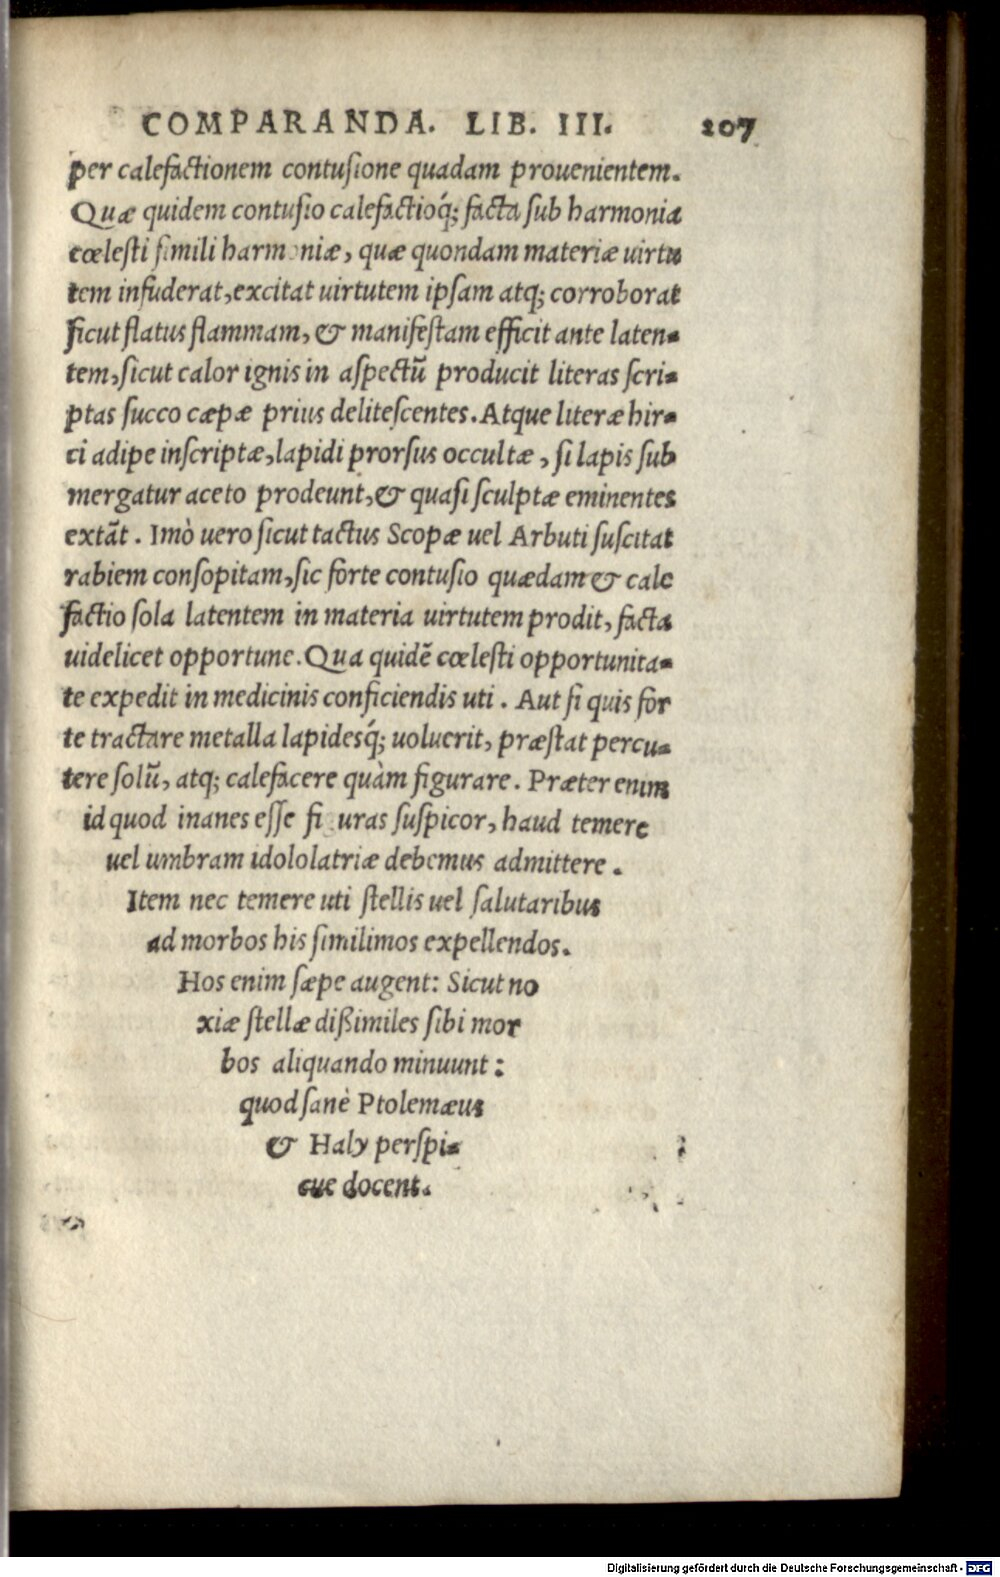 COMPARANDA. LIB. III. 207
per calefactionem contusione quadam prouenientem.
Quæ quidem contusio calefactioq́; facta sub harmonia
cœlesti simili harmoniæ, quæ quondam materiæ uirtu
tem infuderat, excitat uirtutem ipsam atq; corroborat
sicut flatus flammam, & manifestam efficit ante laten-
tem, sicut calor ignis in aspectũ producit literas scri-
ptas succo cæpæ prius delitescentes. Atque literæ hir-
ci adipe inscriptæ, lapidi prorsus occultæ, si lapis sub
mergatur aceto prodeunt, & quasi sculptæ eminentes
extãt. Imò uero sicut tactus Scopæ uel Arbuti suscitat
rabiem consopitam, sic forte contusio quædam & cale
factio sola latentem in materia uirtutem prodit, facta
uidelicet opportune. Qua quidẽ cœlesti opportunita-
te expedit in medicinis conficiendis uti. Aut si quis for
te tractare metalla lapidesq́; uoluerit, præstat percu-
tere solũ, atq; calefacere quàm figurare. Præter enim
id quod inanes esse fi uras suspicor, haud temere
uel umbram idololatriæ debemus admittere.
Item nec temere uti stellis uel salutaribus
ad morbos his similimos expellendos.
Hos enim sæpe augent: Sicut no
xiæ stellæ dißimiles sibi mor
bos aliquando minuunt:
quod sanè Ptolemæus
& Haly perspi-
cue docent.
Digitalisierung gefördert durch die Deutsche Forschungsgemeinschaft - DFG